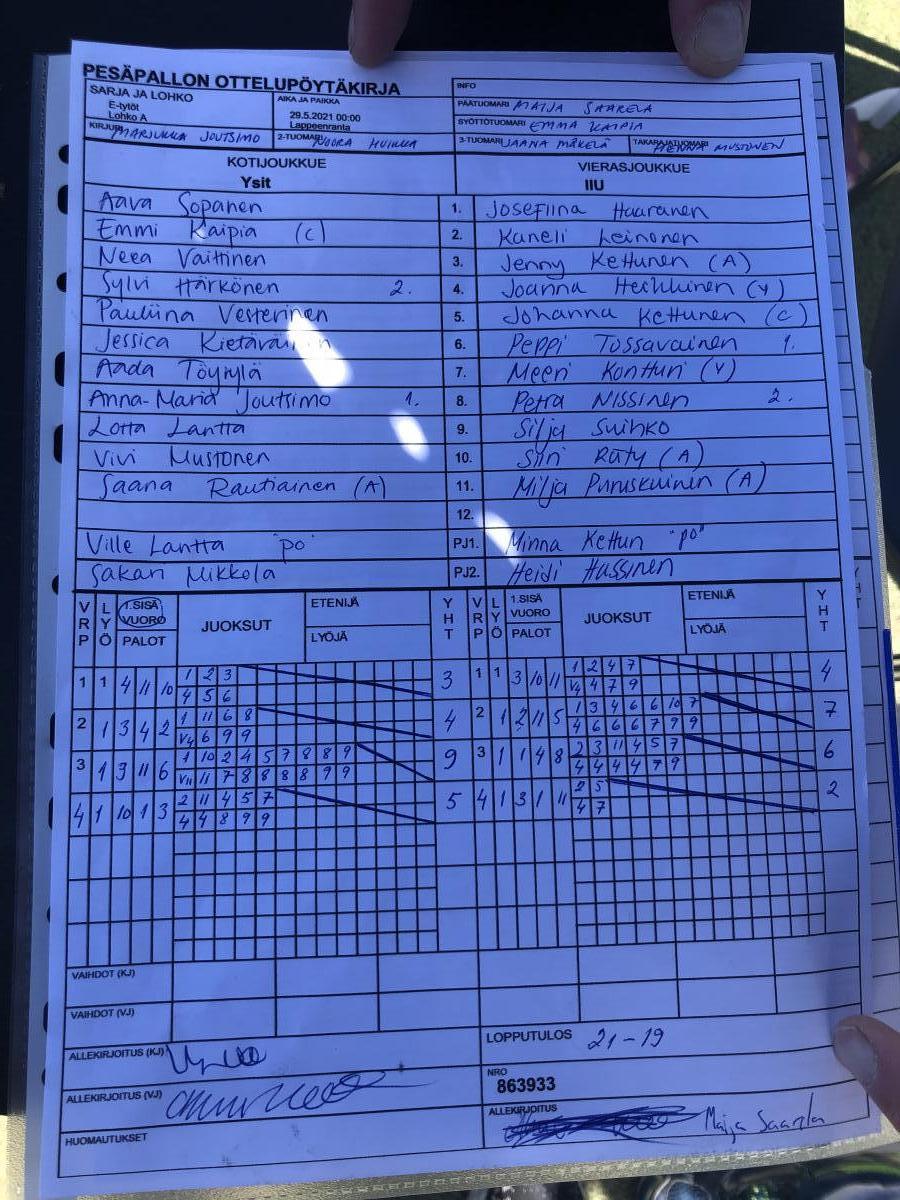 PESÄPALLON OTTELUPÖYTÄKIRJA
SARJA JA LOHKO
E-tytöt
Lohko A
AIKA JA PAIKKA
29.5.2021 00:00
Lappeenranta
INFO
PÄÄTUOMARI MAIJA SAARELA
SYÖTTÖTUOMARI EMMA KAIPIA
KIRJURI MARJUKKA JOUTSIMO
2-TUOMARI NOORA
3-TUOMARI JAANA MÄKELÄ
TAKARAJATUOMARI HENNA MUSTONEN
KOTIJOUKKUE
Ysit
VIERASJOUKKUE
IIU
Aava Sopanen 1. Josefiina Haaranen
Emmi Kaipia (c) 2. Kaneli Leinonen
Neea Vaittinen 3. Jenny Kettunen (A)
Sylvi Härkönen 2. 4. Joanna Heikkinen (V)
Pauliina Vesterinen 5. Johanna Kettunen (c)
Jessica 6. Peppi Tossavainen 1.
Aada Töyrylä 7. Meeri Kontturi (V)
Anna-Maria Joutsimo 1. 8. Petra Nissinen 2.
Lotta Lantta 9. Silja Suihko
Vivi Mustonen 10. Siiri Räty (A)
Saana Rautiainen (A) 11. Milja (A)
12.
Ville Lantta "po" PJ1. Minna Kettun "po"
Sakari Mikkola PJ2. Heidi Hassinen
VRP LYÖ 1.SISÄ VUORO PALOT JUOKSUT ETENIJÄ LYÖJÄ YHT VRP LYÖ 1.SISÄ VUORO PALOT JUOKSUT ETENIJÄ LYÖJÄ YHT
1 2 3 1 2 4 7
1 1 4 11 10 3 1 1 3 10 11 4
4 5 6 V4 4 7 9
1 11 6 8 1 3 4 6 6 10 7
2 1 3 4 2 4 2 1 2 11 5 7
V4 6 9 9 4 6 6 6 7 9 9
1 10 2 4 5 7 8 8 9 2 3 11 4 5 7
3 1 9 11 6 9 3 1 1 4 8 6
11 7 8 8 8 8 9 9 4 4 4 4 7 9
2 11 4 5 7 2 5
4 1 10 1 3 5 4 1 3 1 11 2
4 4 8 9 9 4 7
VAIHDOT (KJ)
VAIHDOT (VJ)
ALLEKIRJOITUS (KJ)
LOPPUTULOS 21-19
ALLEKIRJOITUS (VJ)
NRO
863933
HUOMAUTUKSET
ALLEKIRJOITUS Maija Saarela